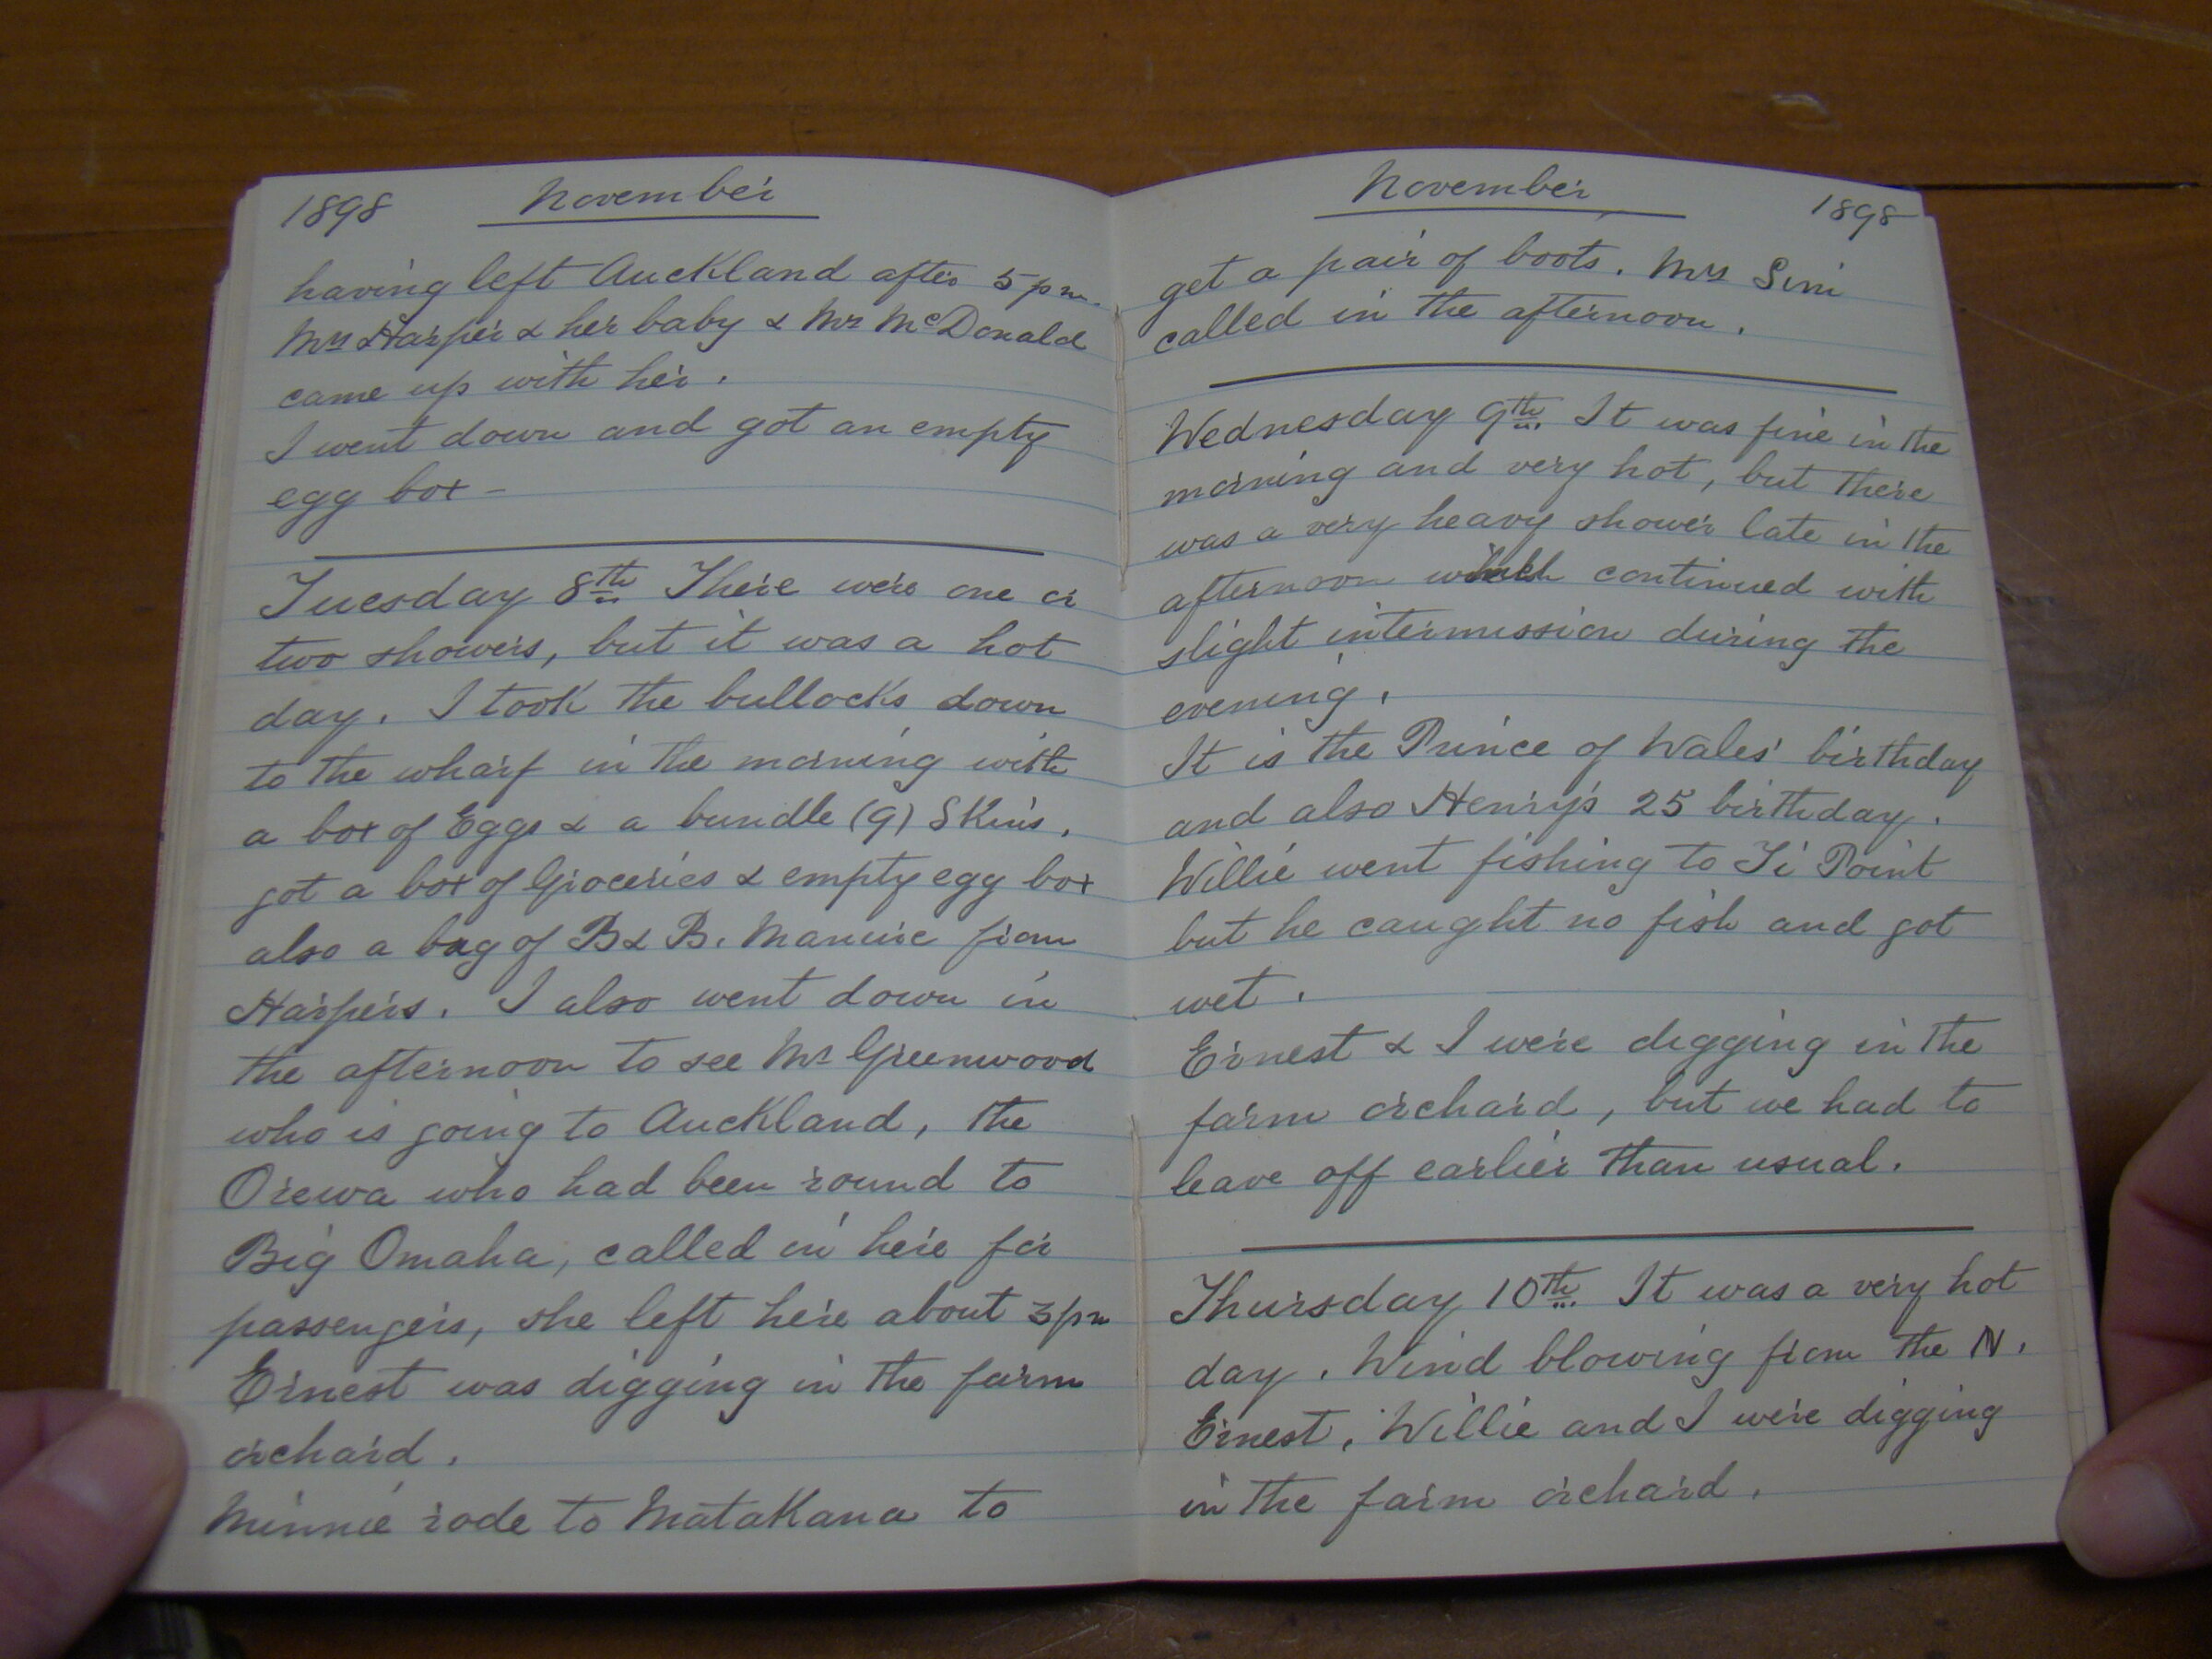 1898 November
having left Auckland after 5 pm.
Mrs Harper & her baby & Mr McDonald
came up with her.
I went down and got an empty
egg box -
Tuesday 8th There were one or
two showers, but it was a hot
day. I took the bullocks down
to the wharf in the morning with
a box of Eggs & a bundle (9) Skins,
got a box of Groceries & empty egg box
also a bag of B & B. Manure from
Harpers. I also went down in
the afternoon to see Mr Greenwood
who is going to Auckland, the
Orewa who had been round to
Big Omaha, called in here for
passengers, she left here about 3 pm
Ernest was digging in the farm
orchard.
Minnie rode to Matakana to
November 1898
get a pair of boots. Mrs
called in the afternoon.
Wednesday 9th. It was fine in the
morning and very hot, but there
was a very heavy shower late in the
afternoon which continued with
slight intermission during the
evening.
It is the Prince of Wales' birthday
and also Henry's 25 birthday.
Willie went fishing to Ti Point
but he caught no fish and got
wet.
Ernest & I were digging in the
farm orchard, but we had to
leave off earlier than usual.
Thursday 10th. It was a very hot
day. Wind blowing from the N.
Ernest, Willie and I were digging
in the farm orchard.